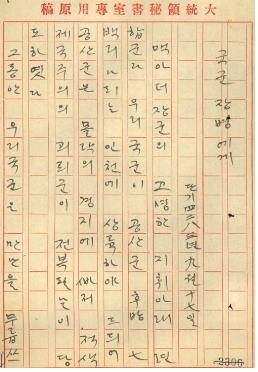 大統領秘書室專用原稿
국군 장병에게
단기 四二八三年 九月 十七일
맥아더 장군의 고명한 지휘아래 련
합군과 우리 국군이 공산군 후방 七
백리나 되는 인천에 상륙하야 드디어
공산군은 몰락의 경지에 빠저 적색
제국주의의 괴뢰군이 전복될 날이 당
도하엿다
그동안 우리 국군은 만난을 무릅쓰
2306